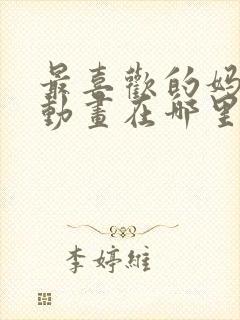 最喜歡的媽
動畫在哪里
李婷維